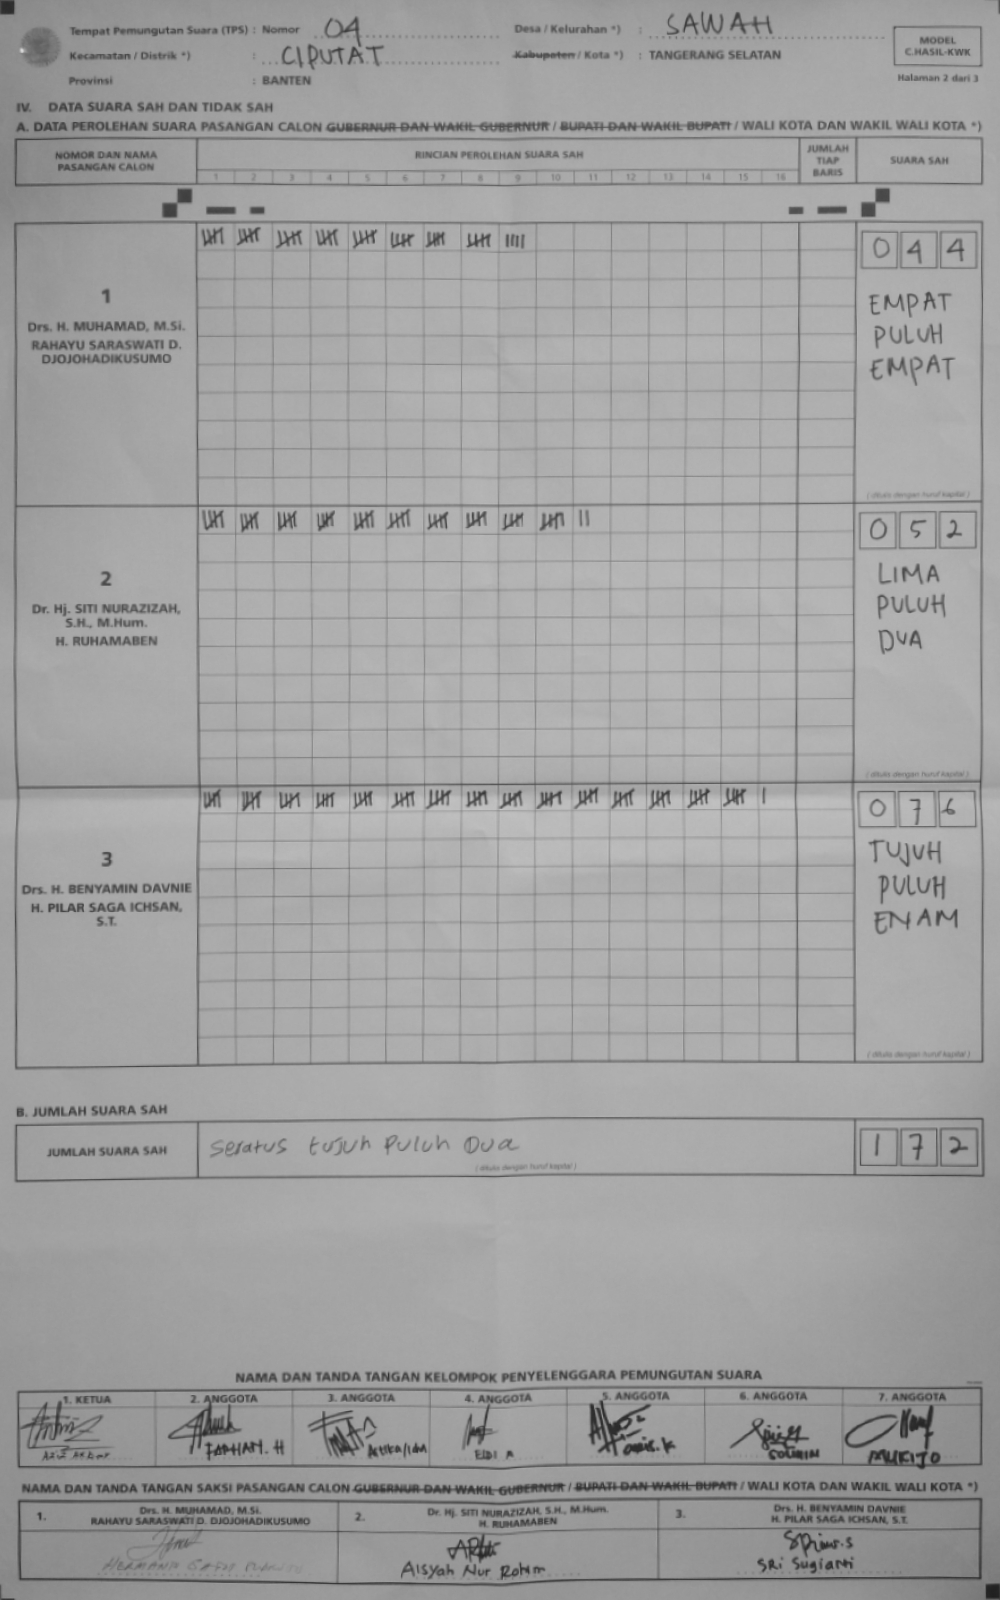 Tempat Pemungutan Suara (TPS) : Nomor 04 Desa / Kelurahan *) : SAWAH
Kecamatan / Distrik *) : CIPUTAT Kabupaten / Kota *) : TANGERANG SELATAN
Provinsi : BANTEN
MODEL
C.HASIL-KWK
Halaman 2 dari 3
IV. DATA SUARA SAH DAN TIDAK SAH
A. DATA PEROLEHAN SUARA PASANGAN CALON GUBERNUR DAN WAKIL GUBERNUR / BUPATI DAN WAKIL BUPATI / WALI KOTA DAN WAKIL WALI KOTA *)
NOMOR DAN NAMA
PASANGAN CALON
RINCIAN PEROLEHAN SUARA SAH
1 2 3 4 5 6 7 8 9 10 11 12 13 14 15 16
JUMLAH
TIAP
BARIS
SUARA SAH
1
Drs. H. MUHAMAD, M.Si.
RAHAYU SARASWATI D.
DJOJOHADIKUSUMO
044
EMPAT
PULUH
EMPAT
( ditulis dengan huruf kapital )
2
Dr. Hj. SITI NURAZIZAH,
S.H., M.Hum.
H. RUHAMABEN
052
LIMA
PULUH
DUA
( ditulis dengan huruf kapital )
3
Drs. H. BENYAMIN DAVNIE
H. PILAR SAGA ICHSAN,
S.T.
076
TUJUH
PULUH
ENAM
( ditulis dengan huruf kapital )
B. JUMLAH SUARA SAH
JUMLAH SUARA SAH seratus tujuh puluh Dua 172
( ditulis dengan huruf kapital )
NAMA DAN TANDA TANGAN KELOMPOK PENYELENGGARA PEMUNGUTAN SUARA
1. KETUA 2. ANGGOTA 3. ANGGOTA 4. ANGGOTA 5. ANGGOTA 6. ANGGOTA 7. ANGGOTA
FARHAN. H
MUKIJO
NAMA DAN TANDA TANGAN SAKSI PASANGAN CALON GUBERNUR DAN WAKIL GUBERNUR / BUPATI DAN WAKIL BUPATI / WALI KOTA DAN WAKIL WALI KOTA *)
1. Drs. H. MUHAMAD, M.Si.
RAHAYU SARASWATI D. DJOJOHADIKUSUMO
2. Dr. Hj. SITI NURAZIZAH, S.H., M.Hum.
H. RUHAMABEN
3. Drs. H. BENYAMIN DAVNIE
H. PILAR SAGA ICHSAN, S.T.
Aisyah Nur Rohim
SRi Sugianti